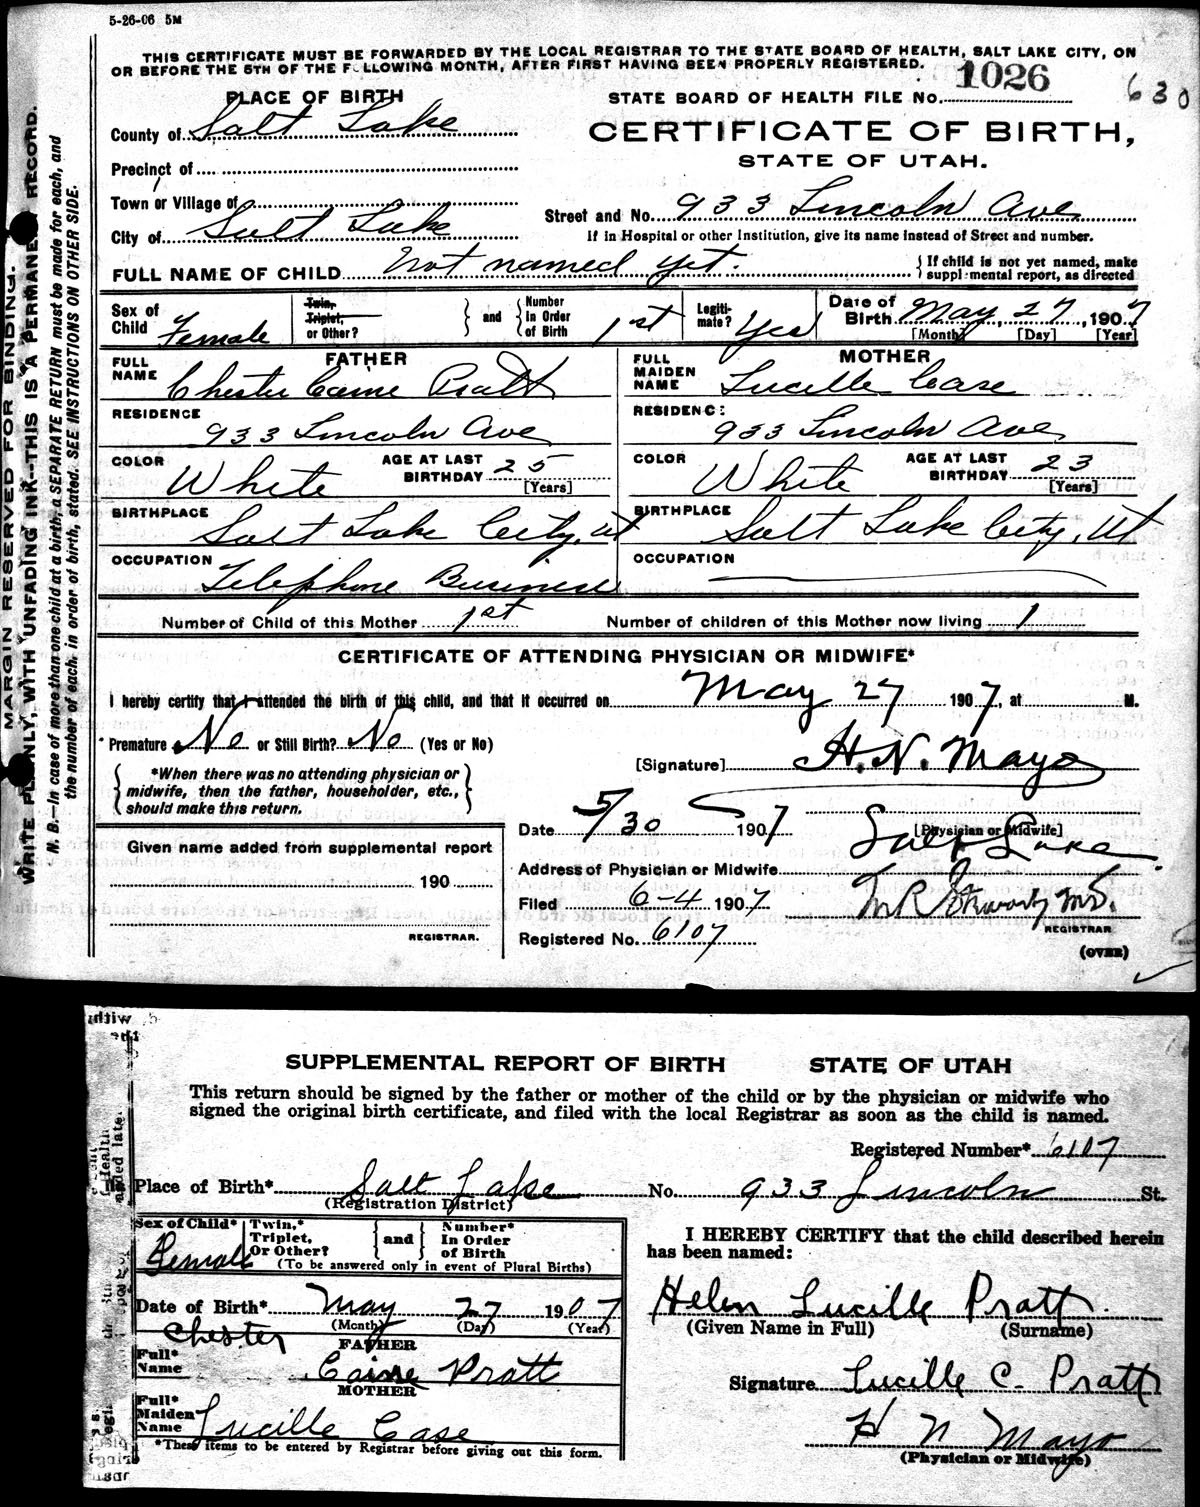 5-26-06 5M
THIS CERTIFICATE MUST BE FORWARDED BY THE LOCAL REGISTRAR TO THE STATE BOARD OF HEALTH, SALT LAKE CITY, ON
OR BEFORE THE 5TH OF THE F LLOWING MONTH, AFTER FIRST HAVING BEEN PROPERLY REGISTERED.
1026
630
PLACE OF BIRTH
STATE BOARD OF HEALTH FILE No.
County of Salt Lake
CERTIFICATE OF BIRTH,
STATE OF UTAH.
Precinct of
Town or Village of
Street and No. 933 Lincoln Ave
City of Salt Lake
If in Hospital or other Institution, give its name instead of Street and number.
FULL NAME OF CHILD Not named yet.
If child is not yet named, make
suppl mental report, as directed
Sex of Child Female
Twin, Triplet, or Other?
and
Number In Order of Birth 1st
Legiti-mate? Yes
Date of Birth May 27, 1907
[Month] [Day] [Year]
FATHER
MOTHER
FULL NAME Chester Caine Pratt
FULL MAIDEN NAME Lucille Case
RESIDENCE 933 Lincoln Ave
RESIDENC: 933 Lincoln Ave
COLOR White
AGE AT LAST BIRTHDAY 25 [Years]
COLOR White
AGE AT LAST BIRTHDAY 23 [Years]
BIRTHPLACE Salt Lake City, Ut
BIRTHPLACE Salt Lake City, Ut
OCCUPATION Telephone Business
OCCUPATION
Number of Child of this Mother 1st
Number of children of this Mother now living 1
CERTIFICATE OF ATTENDING PHYSICIAN OR MIDWIFE*
I hereby certify that I attended the birth of this child, and that it occurred on May 27 1907, at M.
*Premature No or Still Birth? No (Yes or No)
[Signature] H. N. Mayo
*When there was no attending physician or
midwife, then the father, householder, etc.,
should make this return.
Date 5/30 1907
[Physician or Midwife]
Given name added from supplemental report
190
REGISTRAR.
Address of Physician or Midwife Salt Lake
Filed 6-4 1907
M.D.
REGISTRAR
Registered No. 6107
(OVER)
MARGIN RESERVED FOR BINDING.
WRITE PLAINLY, WITH UNFADING INK--THIS IS A PERMANENT RECORD.
N. B.—In case of more than one child at a birth, a SEPARATE RETURN must be made for each, and
the number of each, in order of birth, stated. SEE INSTRUCTIONS ON OTHER SIDE.
SUPPLEMENTAL REPORT OF BIRTH STATE OF UTAH
This return should be signed by the father or mother of the child or by the physician or midwife who
signed the original birth certificate, and filed with the local Registrar as soon as the child is named.
Registered Number* 6107
Place of Birth* Salt Lake No. 933 Lincoln St.
(Registration District)
Sex of Child* Female
Twin,* Triplet, Or Other?
and
Number* In Order of Birth
(To be answered only in event of Plural Births)
I HEREBY CERTIFY that the child described herein
has been named:
Date of Birth* May 27 1907
(Month) (Day) (Year)
Helen Lucille Pratt.
(Given Name in Full) (Surname)
FATHER
Full* Name Chester Caine Pratt
Signature Lucille C. Pratt
MOTHER
Full* Maiden Name Lucille Case
H N Mayo
(Physician or Midwife)
*These items to be entered by Registrar before giving out this form.